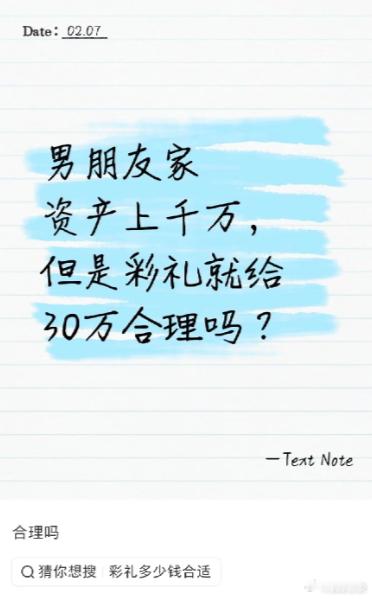 Date: 02.07
男朋友家
资产上千万，
但是彩礼就给
30万合理吗？
—Text Note
合理吗
猜你想搜 彩礼多少钱合适